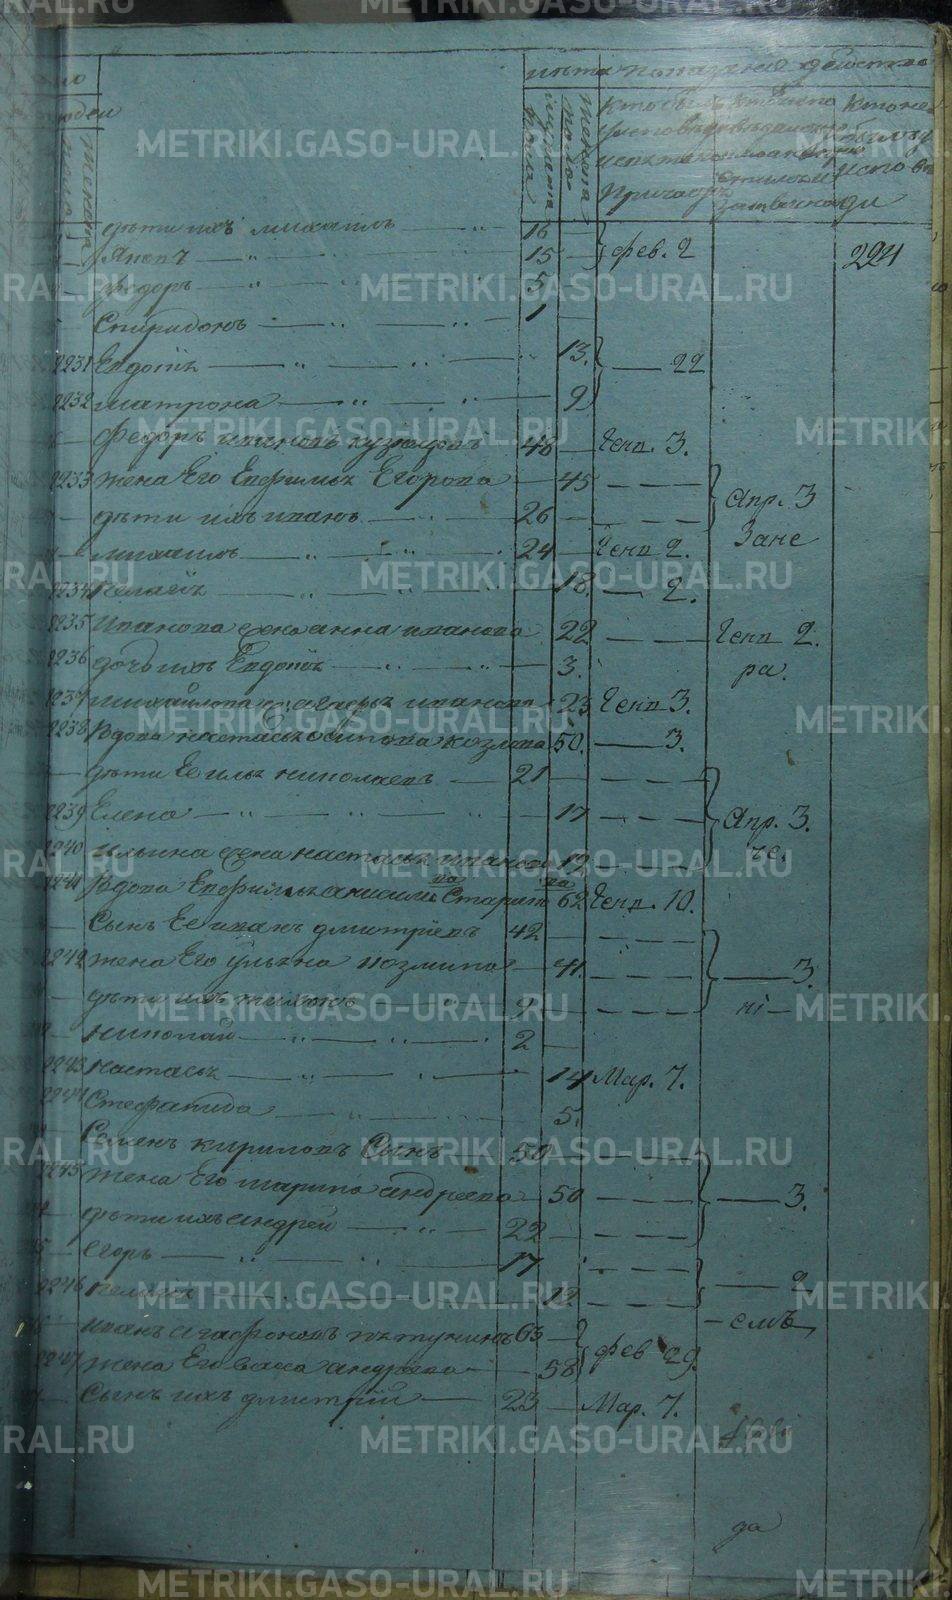 лѣта показание действ
мужеска пола
женска пола
Кто былъ
Кто не
дѣти ихъ михаилъ 16
Яковъ 15 фев. 2 224
Федоръ 5
Спиридонъ 1
2231 Евдокiя 13. 22
2232 матрона 9
Федоръ ивановъ кузнецовъ 48 Генв. 3.
2233 жена Его Евфимья Егорова 45 Апр. 3
дѣти ихъ иванъ 26 Зане
михаилъ 24 Генв 2.
2234 Пелагея 18. 2.
2235 Иванова жена анна иванова 22 Генв 2.
2236 дочь ихъ Евдокiя 3. ра.
2237 михайлова жена агафья иванова 23 Генв 3.
2238 Вдова настасья осипова козлова 50. 3.
дѣти Ее илья николаевъ 21
2239 Елена 17 Апр. 3.
2240 ильина жена настасья иванова 19 че.
2241 Вдова Евфимья анисимова 62 Генв. 10.
Сынъ Ее иванъ дмитрiевъ 42
2242 жена Его Ульяна козмина 41. 3.
дѣти ихъ тихонъ 9 нi
николай 2
2243 настасья 14 Мар. 7.
2244 Стефанида 5.
Семенъ кириловъ Сынъ 50
2245 жена Его марина андреева 50 3.
дѣти ихъ андрей 22
егоръ 17
2246 пелагея 12 2
иванъ агафоновъ петунинъ 63 емъ
2247 жена Его васса андреева 58 фев 29.
Сынъ ихъ дмитрiй 23 Мар. 7.
да
METRIKI.GASO-URAL.RU